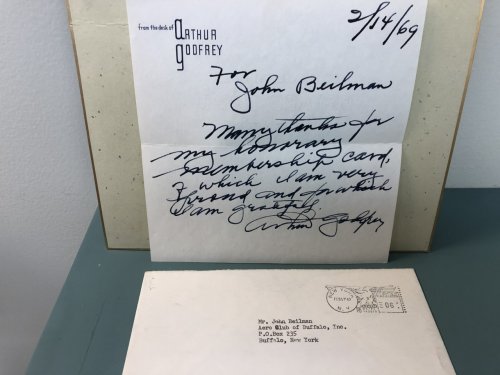 2/14/69
from the desk of ARTHUR
GODFREY
For
John Beilman
Many thanks for
my honorary
membership card,
of which I am very
proud and for which
I am grateful,
Arthur Godfrey
NEW YORK
N.Y.
06
Mr. John Beilman
Aero Club of Buffalo, Inc.
P.O.Box 235
Buffalo, New York